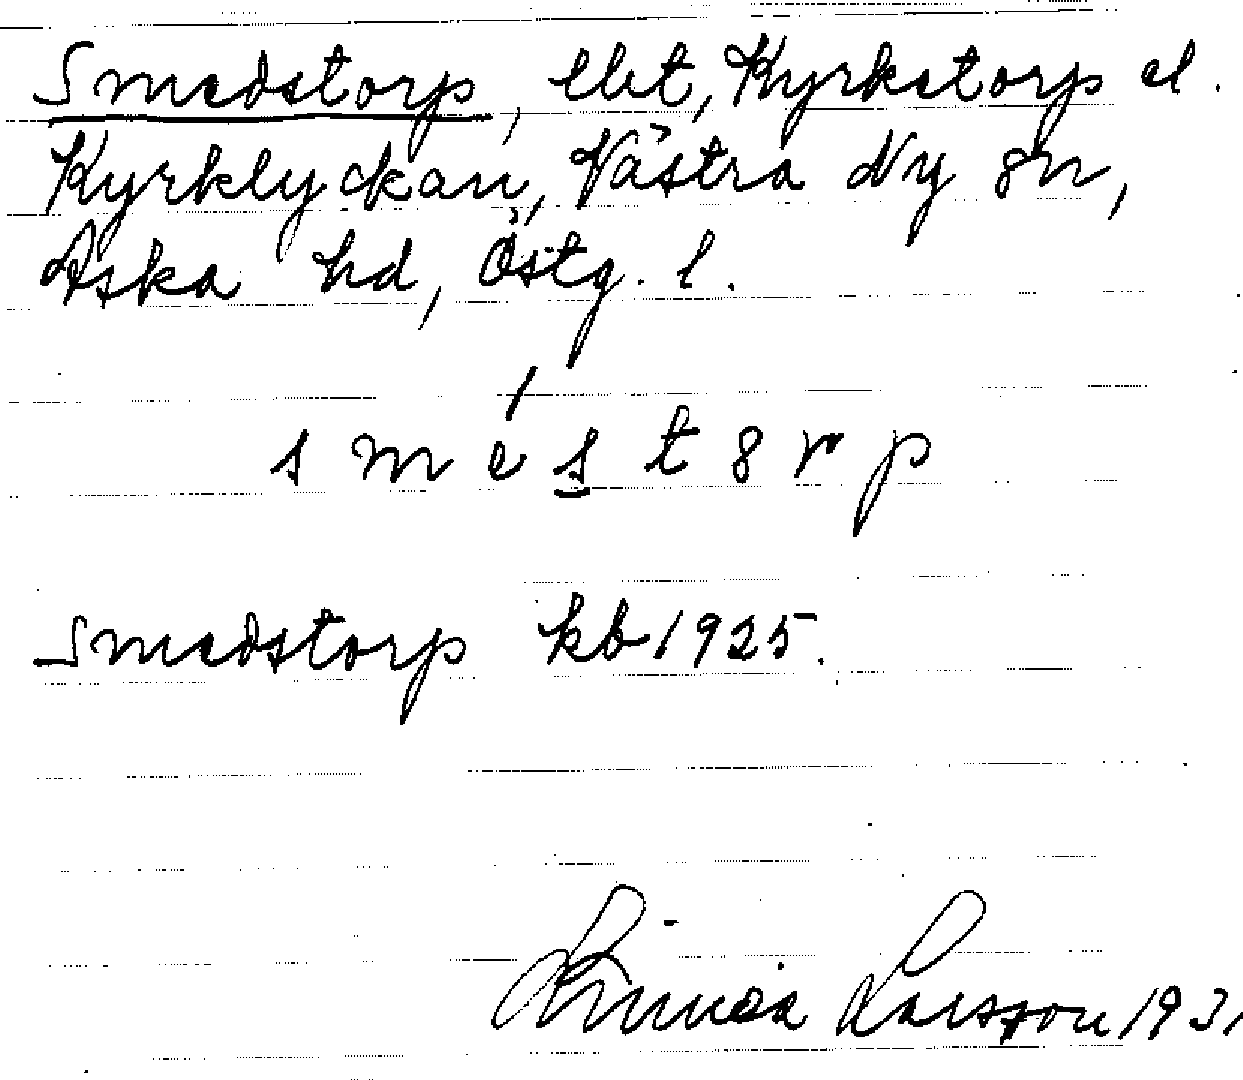 Smedstorp, lht, Kyrkstorp el.
Kyrklyckan, Västra Ny sn,
Aska hd, Östg. l.
s m é s t 8 r p
Smedstorp kb 1925.
Linnéa Larsson 1931